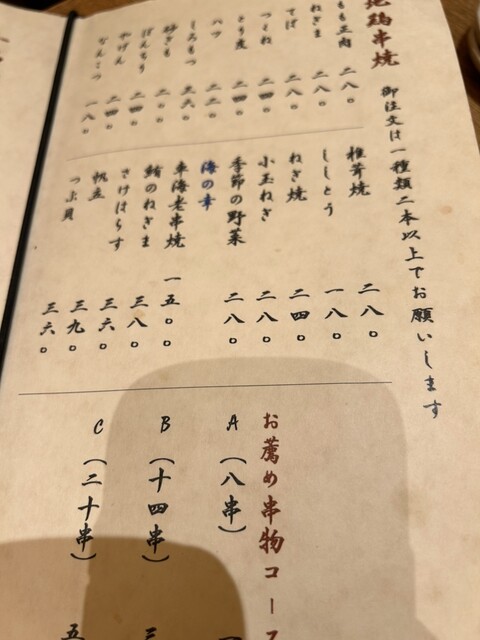 地鶏串焼
御注文は一種類二本以上でお願いします
もも正肉 二八〇
ねぎま 二八〇
てば 二八〇
つくね 二四〇
とり皮 二四〇
ハツ 二二〇
しろもつ
砂ぎも
ぼんちり 二四〇
やげん 二四〇
なんこつ 一八〇
椎茸焼 二八〇
ししとう 一八〇
ねぎ焼 二四〇
小玉ねぎ 二八〇
季節の野菜 二八〇
海の幸
車海老串焼 一五〇〇
鮪のねぎま 三八〇
さけはらす 三六〇
帆立 三九〇
つぶ貝 三六〇
お薦め串物コース
A（八串）
B（十四串）
C（二十串）